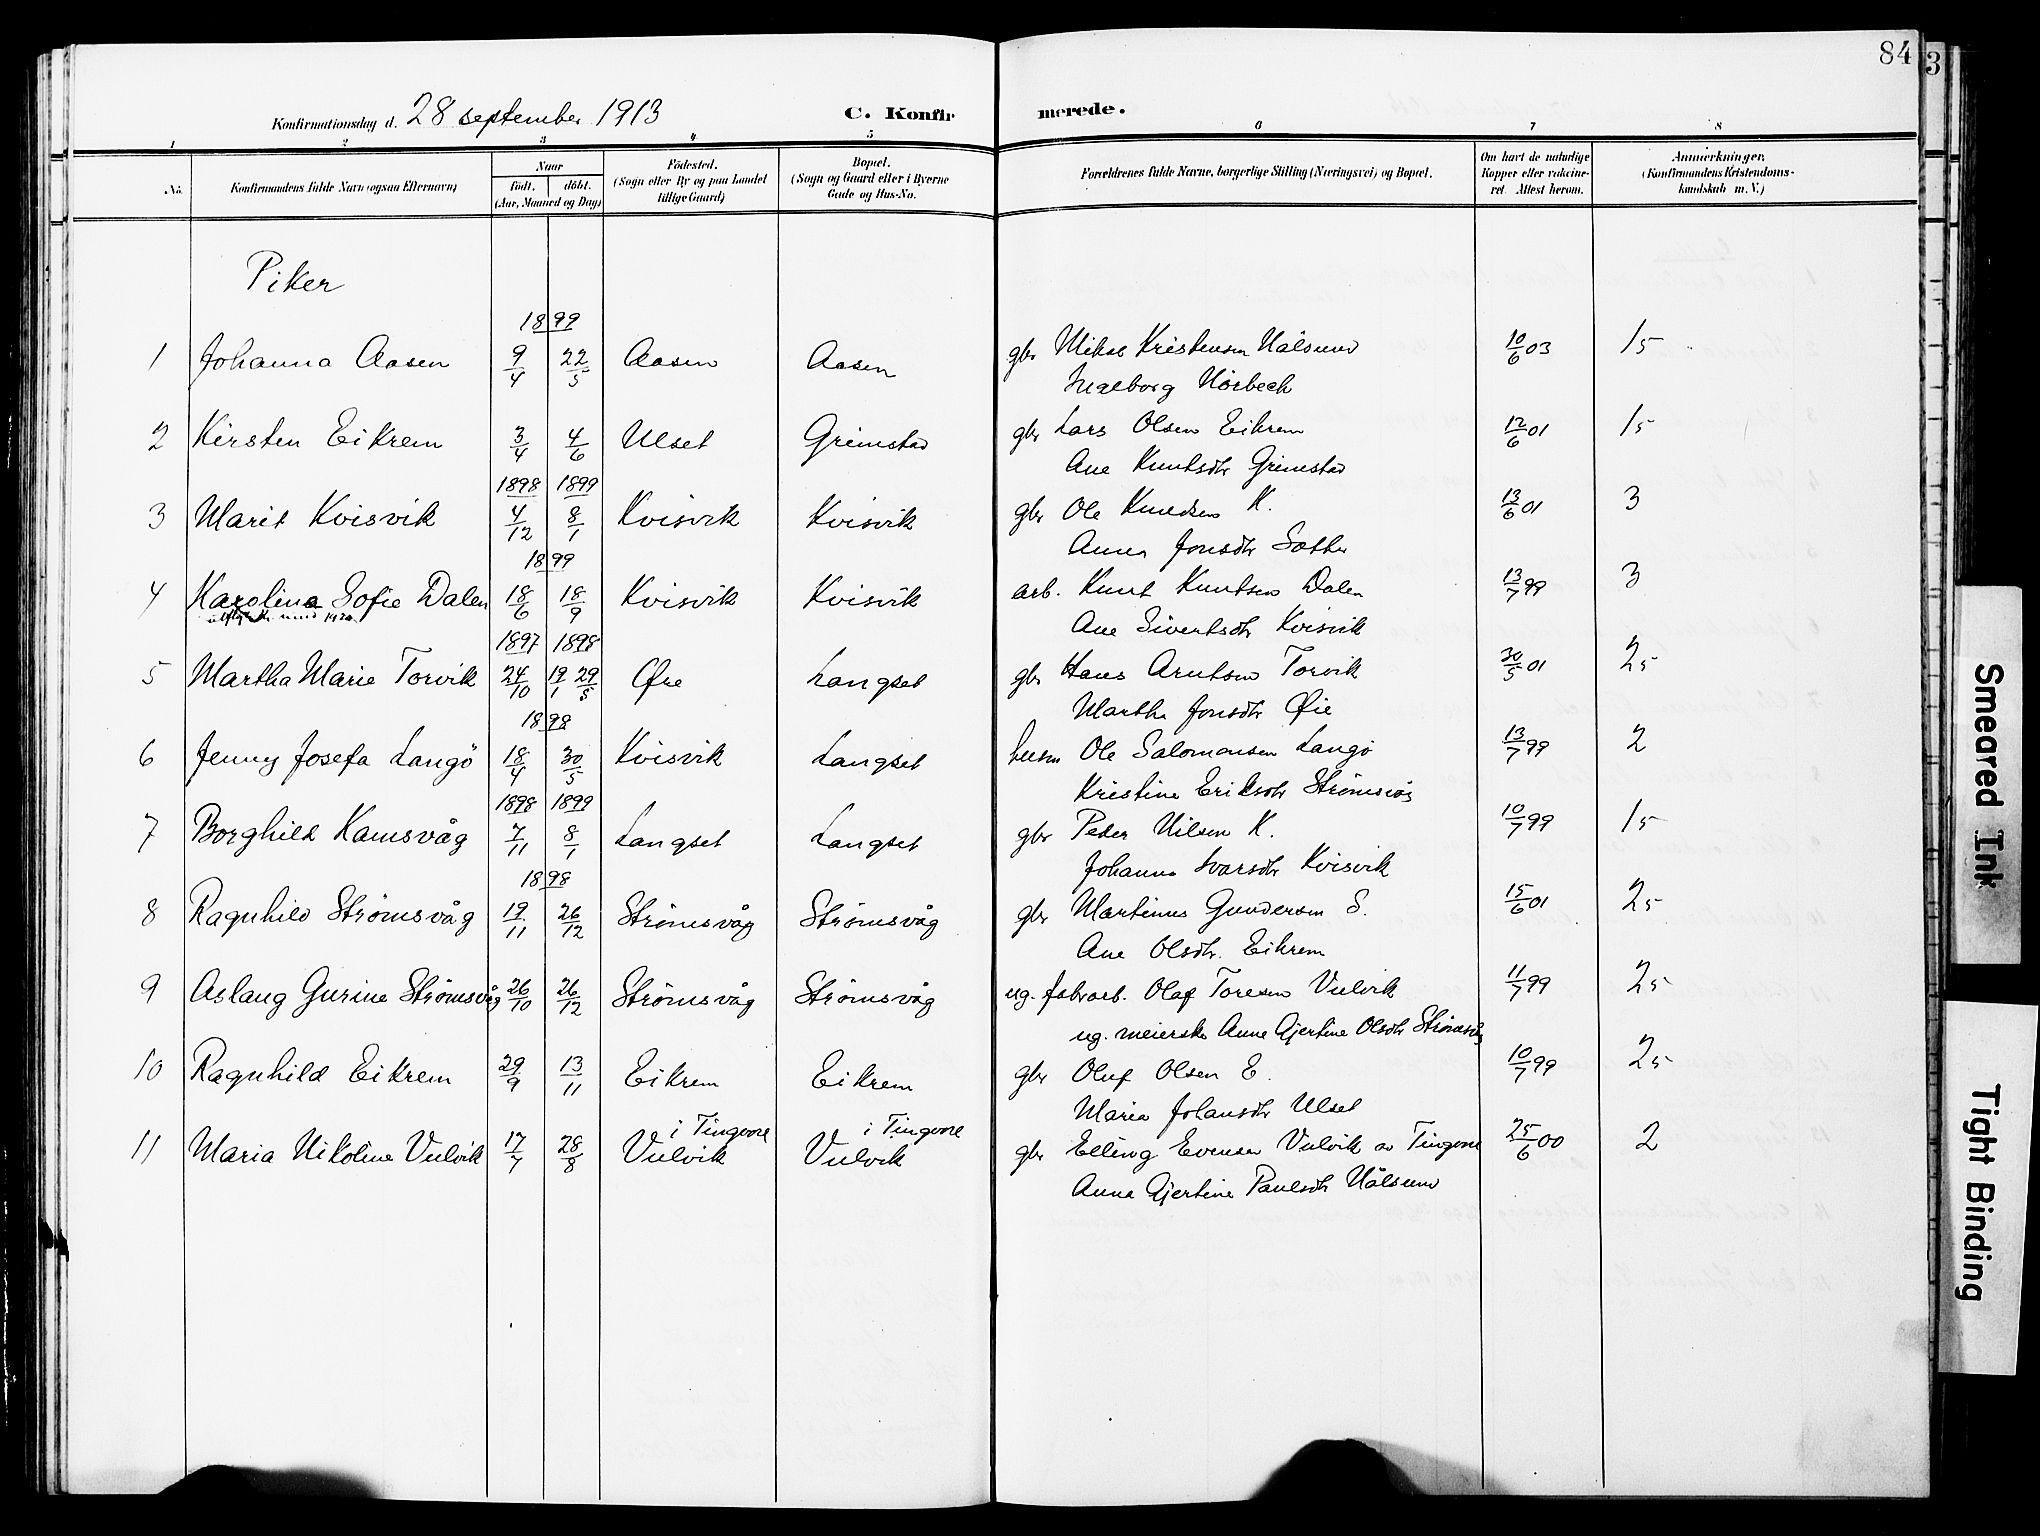 84
3
Konfirmationsdag d. 28 september 1913 C. Konfirmerede.
1 2 3 4 5 6 7 8
No. Konfirmandens fulde Navn (ogsaa Efternavn) Naar født. døbt. (Aar, Maaned og Dag) Födested. (Sogn eller By og paa Landet tillige Gaard) Bopæl. (Sogn og Gaard eller i Byerne Gade og Hus-No. Forældrenes fulde Navne, borgerlige Stilling (Næringsvei) og Bopæl. Om havt de naturlige Kopper eller vaccineret. Attest herom. Anmærkninger. (Konfirmandens Kristendomskundskab m. V.)
Piker
1899
1 Johanna Aasen 9/4 22/5 Aasen Aasen gbr Mikal Kristensen Nålsund 10/6 03 15
Ingeborg Nørbech
2 Kirsten Eikrem 3/4 4/6 Ulset Grimstad gbr Lars Olsen Eikrem 12/6 01 15
Ane Knutsdtr Grimstad
1898 1899
3 Marit Kvisvik 4/12 8/1 Kvisvik Kvisvik gbr Ole Knudsen K. 13/6 01 3
Anna Jonsdtr Sætter
1899
4 Karolina Sofie Dalen 18/6 18/9 Kvisvik Kvisvik arb. Knut Knutsen Dalen 13/7 99 3
Ane Sivertsdtr Kvisvik
1897 1898
5 Martha Marie Torvik 24/10 19/1 29/5 Øre Langset gbr Hans Arntsen Torvik 30/5 01 25
Martha Jonsdtr Øie
1898
6 Jenny Josefa Langö 18/4 30/5 Kvisvik Langset husm Ole Salomonsen Langö 13/7 99 2
Kristine Eriksdtr Strømsvåg
1898 1899
7 Borghild Kamsvåg 7/11 8/1 Langset Langset gbr Peder Nilsen K. 10/7 99 15
Johanna Ivarsdtr Kvisvik
1898
8 Ragnhild Strømsvåg 19/11 26/12 Strømsvåg Strømsvåg gbr Martinus Gundersen S. 15/6 01 25
Ane Olsdtr. Eikrem
9 Aslaug Gurine Strømsvåg 26/10 26/12 Strømsvåg Strømsvåg ug. fabrarb. Olaf Toresen Vulvik 11/7 99 25
ug. meierske Anne Gjertine Olsdtr Strømsvåg
10 Ragnhild Eikrem 29/9 13/11 Eikrem Eikrem gbr Oluf Olsen E. 10/7 99 25
Maria Johansdtr Ulset
i Tingvoll i Tingvoll
11 Maria Nikoline Vulvik 17/7 28/8 Vulvik Vulvik gbr Elling Evensen Vulvik av Tingvoll 25/6 00 2
Anna Gjertine Paulsdtr Nålsund
Smeared Ink
Tight Binding